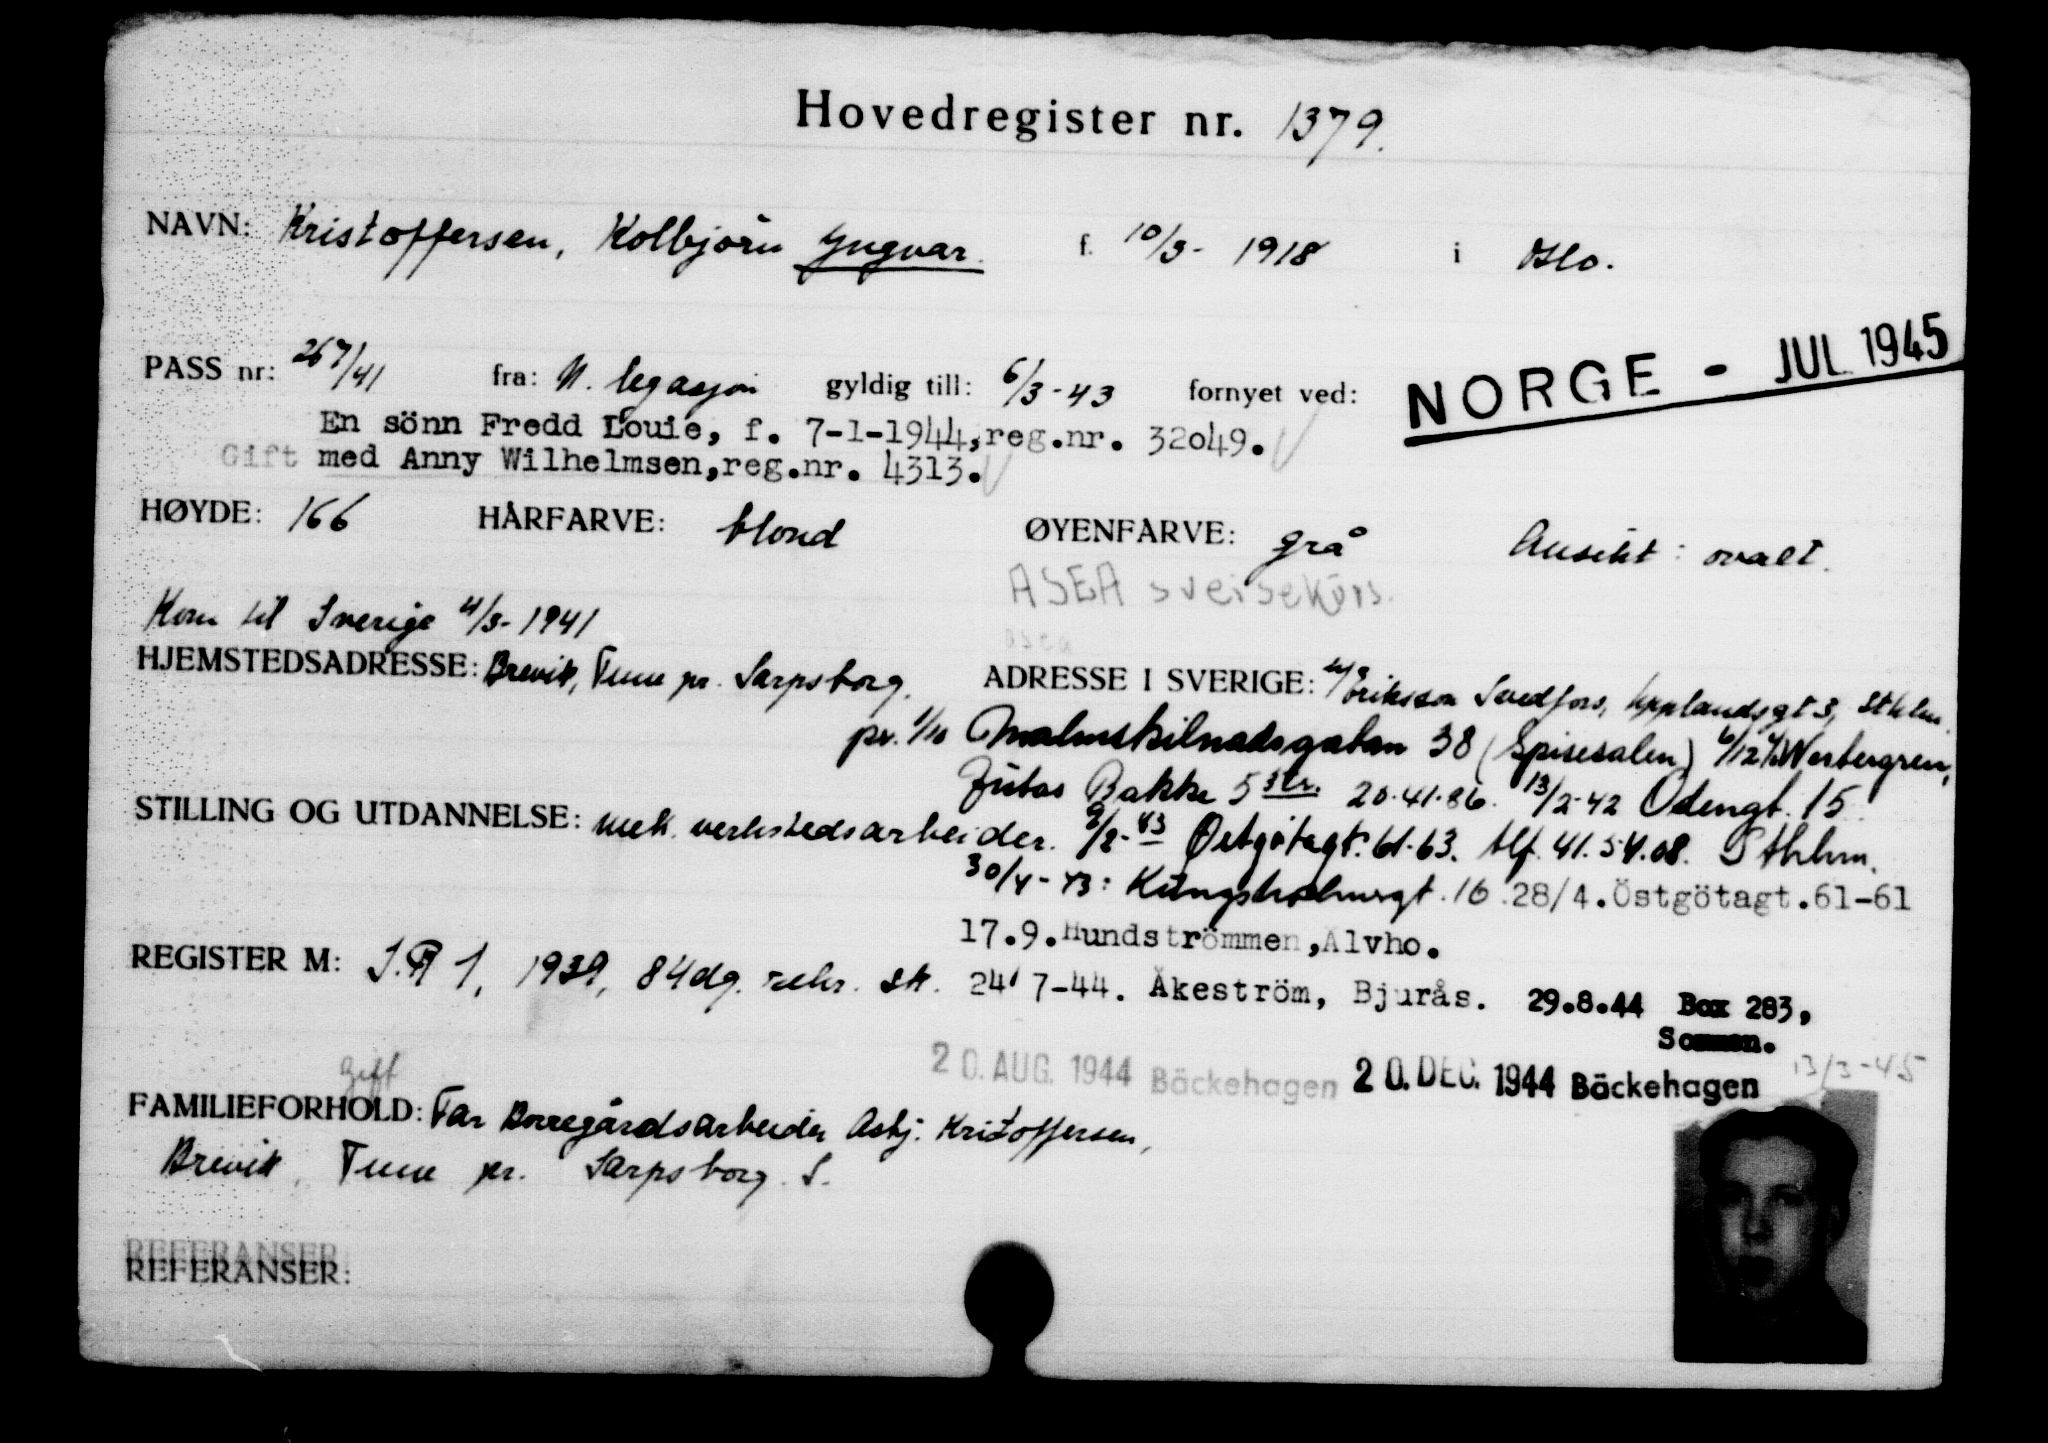 Hovedregister nr. 1379.
NAVN: Kristoffersen, Kolbjörn Yngvar. f. 10/3- 1918 i Oslo.
PASS nr: 267/41 fra: N. legasjon gyldig till: 6/3-43 fornyet ved:
NORGE - JUL 1945
En sönn Fredd Louie, f. 7-1-1944, reg.nr. 32049.
Gift med Anny Wilhelmsen, reg.nr. 4313.
HØYDE: 166 HÅRFARVE: blond ØYENFARVE: grå Ansikt: ovalt.
ASEA sveisekurs.
asea
Kom til Sverige 4/3-1941
HJEMSTEDSADRESSE: Brevik, Tune pr. Sarpsborg.
ADRESSE I SVERIGE: Eriksson Svedfors, Upplandsgt 3, Sthlm.
pr. 1/10 Malmskilnadsgatan 38 (Spisesalen) 6/12 Westergren,
Jutas Bakke 5 3 tr. 20.41.86. 13/2-42 Odengt. 15
STILLING OG UTDANNELSE: mek. verkstedsarbeider. 2/2-43 Östgötagt. 61-63. tlf. 41.54.08. Sthlm.
30/4-43: Kungsholmsgt. 16. 28/4. Östgötagt. 61-61
17.9. Hundströmmen, Älvho.
REGISTER M: I.R 1, 1939, 84 dg. rekr. sk.
24/7-44. Åkeström, Bjurås. 29.8.44 Box 283,
Sommen.
20. AUG. 1944 Bäckehagen 20. DEC. 1944 Bäckehagen 13/3-45
gift
FAMILIEFORHOLD: Far Borregårdsarbeider Asbj. Kristoffersen,
Brevik, Tune pr. Sarpsborg. S.
REFERANSER
REFERANSER: